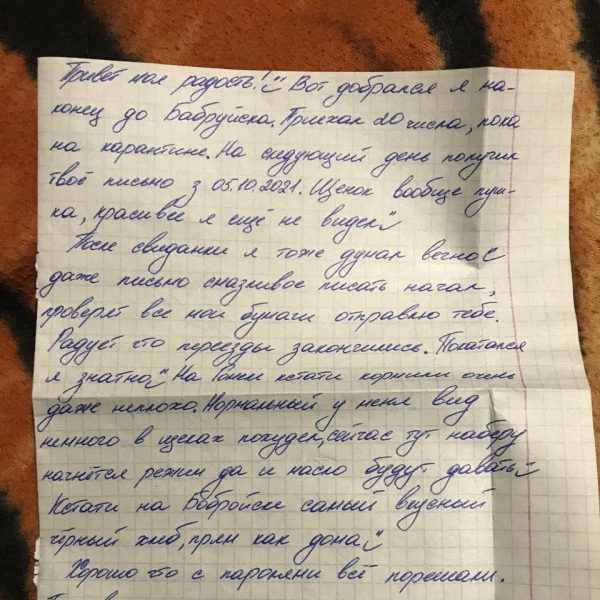 Привет моя радость! Вот добрался я на-
конец до Бабруйска. Приехал 20 числа, пока
на карантине. На следующий день получил
твоё письмо з 05.10.2021. Щенок вообще пуш-
ка, красивее я ещё не видел
После свиданки я тоже думал вечно
даже письмо сназливое писать начал,
проверят все мои бумаги отправлю тебе.
Радует что переезды закончились. Покатался
я знатно. На кстати кормили очень
даже неплохо. Нормальный у меня вид
немного в щеках похудел, сейчас тут наберу
начнётся режим да и масло будут давать
Кстати на Бобруйске самый вкусный
чёрный хлеб, прям как дома
Хорошо что с паролями всё порешали.